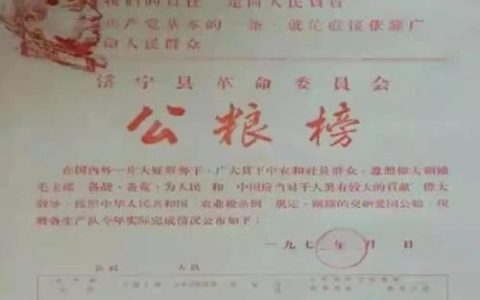 我们的责任 是向人民负责
共产党基本的一条，就是直接依靠广
大人民群众
济宁县革命委员会
公粮榜
在国内外一片大好形势下，广大贫下中农和社员群众，遵照伟大领袖
毛主席 备战、备荒、为人民 和 中国应当对于人类有较大的贡献 伟大
教导，按照中华人民共和国 农业税条例 规定，踊跃的交纳爱国公粮，现
将各生产队今年实际完成情况公布如下：
一九七 年 月 日
公社 大队